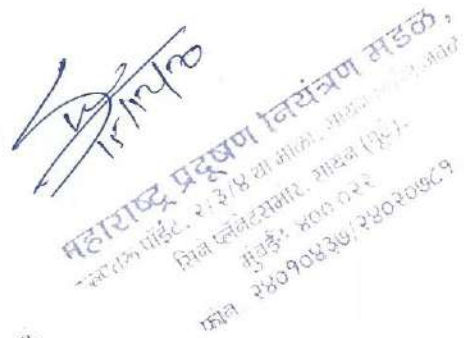 १५/१२/२०
महाराष्ट्र प्रदूषण नियंत्रण मंडळ,
कल्पतरू पॉईंट, २/३/४ था माळा, सायन
सिने प्लॅनेटसमोर, सायन (पूर्व),
मुंबई- ४०० ०२२
फोन २४०१०४३७/२४०२०७८१